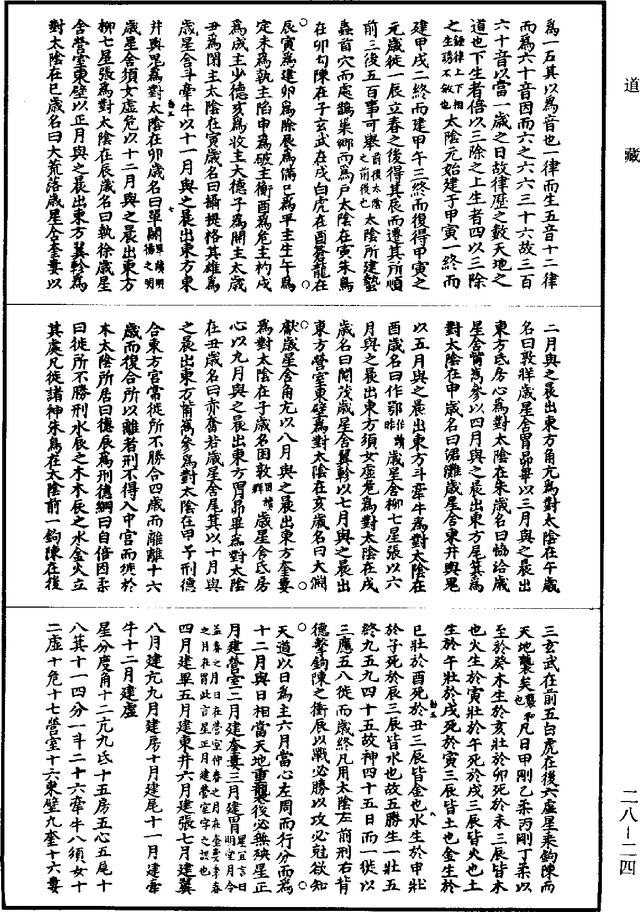 道藏
為一石其以為音也一律而生五音十二律
而為六十音因而六之六六三十六故三百
六十音以當一歲之日故律歷之數天地之
道也下生者倍以三除之上生者四以三除
之太陰元始建于甲寅一終而
建甲戌二終而建甲午三終而復得甲寅之
元歲徙一辰立春之後得其辰而遷其所順
前三後五百事可舉太陰所建蟄
蟲首穴而處鵲巢鄉而為戶太陰在寅朱鳥
在卯勾陳在子玄武在戌白虎在酉蒼龍在
辰寅為建卯為除辰為滿巳為平主生午為
定未為執主陷申為破主衡酉為危主杓戌
為成主少德亥為收主大德子為開主太歲
丑為閉主太陰在寅歲名曰攝提格其雄為
歲星舍斗牽牛以十一月與之晨出東方東
井輿鬼為對太陰在卯歲名曰單閼
歲星舍須女虛危以十二月與之晨出東方
柳七星張為對太陰在辰歲名曰執徐歲星
舍營室東壁以正月與之晨出東方翼軫為
對太陰在巳歲名曰大荒落歲星舍奎婁以
二月與之晨出東方角亢為對太陰在午歲
名曰敦牂歲星舍胃昴畢以三月與之晨出
東方氐房心為對太陰在未歲名曰協洽歲
星舍觜嶲參以四月與之晨出東方尾箕為
對太陰在申歲名曰涒灘歲星舍東井輿鬼
以五月與之晨出東方斗牽牛為對太陰在
酉歲名曰作鄂歲星舍柳七星張以六
月與之晨出東方須女虛危為對太陰在戌
歲名曰閹茂歲星舍翼軫以七月與之晨出
東方營室東壁為對太陰在亥歲名曰大淵
獻歲星舍角亢以八月與之晨出東方奎婁
為對太陰在子歲名困敦歲星舍氐房
心以九月與之晨出東方胃昴畢為對太陰
在丑歲名曰赤奮若歲星舍尾箕以十月與
之晨出東方觜嶲參為對太陰在甲子刑德
合東方宮常徙所不勝合四歲而離離十六
歲而復合所以離者刑不得入中宮而徙於
木太陰所居曰德辰為刑德綱曰自倍因柔
曰徙所不勝刑水辰之木木辰之水金火立
其處凡徙諸神朱鳥在太陰前一鉤陳在後
三玄武在前五白虎在後六虛星乘鉤陳而
天地襲矣凡日甲剛乙柔丙剛丁柔以
至於癸木生於亥壯於卯死於未三辰皆木
也火生於寅壯於午死於戌三辰皆火也土
生於午壯於戌死於寅三辰皆土也金生於
巳壯於酉死於丑三辰皆金也水生於申壯
於子死於辰三辰皆水也故五勝生一壯五
終九五九四十五故神四十五日而一徙以
三應五八徙而歲終凡用太陰左前刑右背
德擊鉤陳之衝辰以戰必勝以攻必尅欲知
天道以日為主六月當心左周而行分而為
十二月與日相當天地重襲後必無殃星正
月建營室二月建奎婁三月建胃
四月建畢五月建東井六月建張七月建翼
八月建亢九月建房十月建尾十一月建牽
牛十二月建虛
星分度角十二亢九氐十五房五心五尾十
八箕十一四分一斗二十六牽牛八須女十
二虛十危十七營室十六東壁九奎十六婁
二八-二四